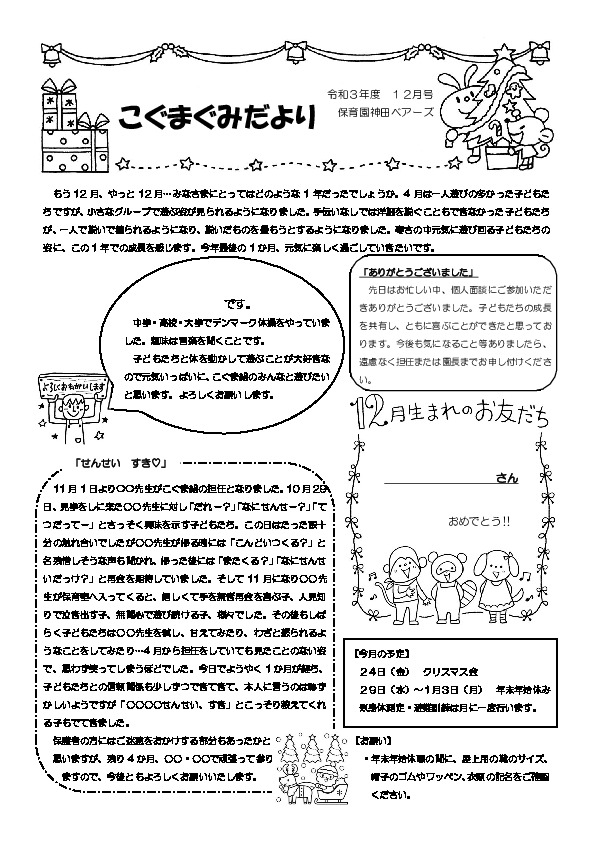 令和３年度　１２月号
保育園神田ベアーズ
こぐまぐみだより
もう 12 月、やっと 12 月…みなさまにとってはどのような 1 年だったでしょうか。4 月は一人遊びの多かった子どもた
ちですが、小さなグループで遊ぶ姿が見られるようになりました。手伝いなしでは洋服を脱ぐこともできなかった子どもたち
が、一人で脱いで着られるようになり、脱いだものを畳もうとするようになりました。寒さの中元気に遊び回る子どもたちの
姿に、この 1 年での成長を感じます。今年最後の 1 か月、元気に楽しく過ごしていきたいです。
です。
中学・高校・大学でデンマーク体操をやっていま
した。趣味は音楽を聞くことです。
子どもたちと体を動かして遊ぶことが大好きな
ので元気いっぱいに、こぐま組のみんなと遊びたい
と思います。よろしくお願いします。
よろしくおねがいします
「ありがとうございました」
先日はお忙しい中、個人面談にご参加いただ
きありがとうございました。子どもたちの成長
を共有し、ともに喜ぶことができたと思ってお
ります。今後も気になること等ありましたら、
遠慮なく担任または園長までお申し付けくださ
い。
12月生まれのお友だち
さん
おめでとう!!
「せんせい　すき♡」
11 月 1 日より〇〇先生がこぐま組の担任となりました。10 月 29
日、見学をしに来た〇〇先生に対し「だれー？」「なにせんせー？」「て
つだってー」とさっそく興味を示す子どもたち。この日はたった数十
分の触れ合いでしたが〇〇先生が帰る時には「こんどいつくる？」と
名残惜しそうな声も聞かれ、帰った後には「またくる？」「なにせんせ
いだっけ？」と再会を期待していました。そして 11 月になり〇〇先
生が保育室へ入ってくると、嬉しくて手を振り再会を喜ぶ子、人見知
りで泣き出す子、無関心で遊び続ける子、様々でした。その後もしば
らく子どもたちは〇〇先生を試し、甘えてみたり、わざと怒られるよ
うなことをしてみたり…4 月から担任をしていても見たことのない姿
で、思わず笑ってしまうほどでした。今日でようやく 1 か月が経ち、
子どもたちとの信頼関係も少しずつできてきて、本人に言うのは恥ず
かしいようですが「〇〇〇〇せんせい、すき」とこっそり教えてくれ
る子もでてきました。
保護者の方にはご迷惑をおかけする部分もあったかと
思いますが、残り 4 か月、〇〇・〇〇で頑張って参り
ますので、今後ともよろしくお願いいたします。
【今月の予定】
２４日（金）　クリスマス会
２９日（水）～１月３日（月）　年末年始休み
気身体測定・避難訓練は月に一度行います。
【お願い】
・年末年始休暇の間に、屋上用の靴のサイズ、
帽子のゴムやワッペン、衣類の記名をご確認
ください。